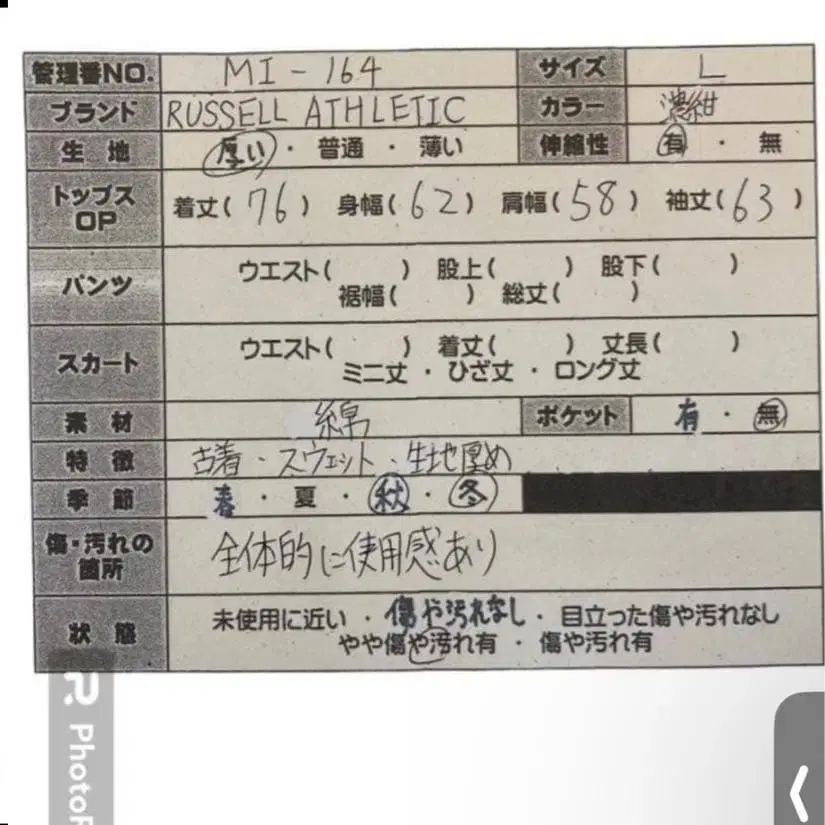 管理番NO. MI-164 サイズ L
ブランド RUSSELL ATHLETIC カラー 濃紺
生地 厚い・普通・薄い 伸縮性 有・無
トップス OP 着丈(76) 身幅(62) 肩幅(58) 袖丈(63)
パンツ ウエスト( ) 股上( ) 股下( )
裾幅( ) 総丈( )
スカート ウエスト( ) 着丈( ) 丈長( )
ミニ丈・ひざ丈・ロング丈
素材 綿 ポケット 有・無
特徴 古着・スウェット・生地厚め
季節 春・夏・秋・冬
傷・汚れの箇所 全体的に使用感あり
状態 未使用に近い・傷や汚れなし・目立った傷や汚れなし
やや傷や汚れ有・傷や汚れ有
R PhotoR